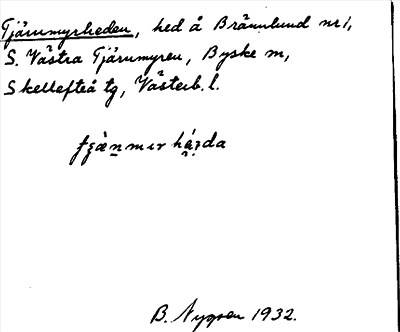 Tjärumyrheden, hed å Brännlund nr 1,
S. Västra Tjärumyren, Byske sn,
Skellefteå tg, Västerb. l.
B. Nygren 1932.